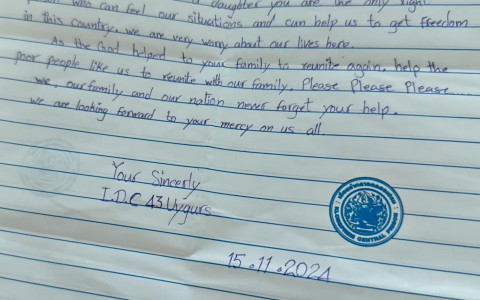 who can feel our situations and can help us to get freedom
in this country. we are very worry about our lives here.
As the God helped to your family to reunite again, help the
poor people like us to reunite with our family. Please Please Please....
we, our family and our nation never forget your help.
we are looking forward to your mercy on us all.
Your Sincerly
I.D.C 43 Uygurs
CENTRAL PRISON
15.11.2024